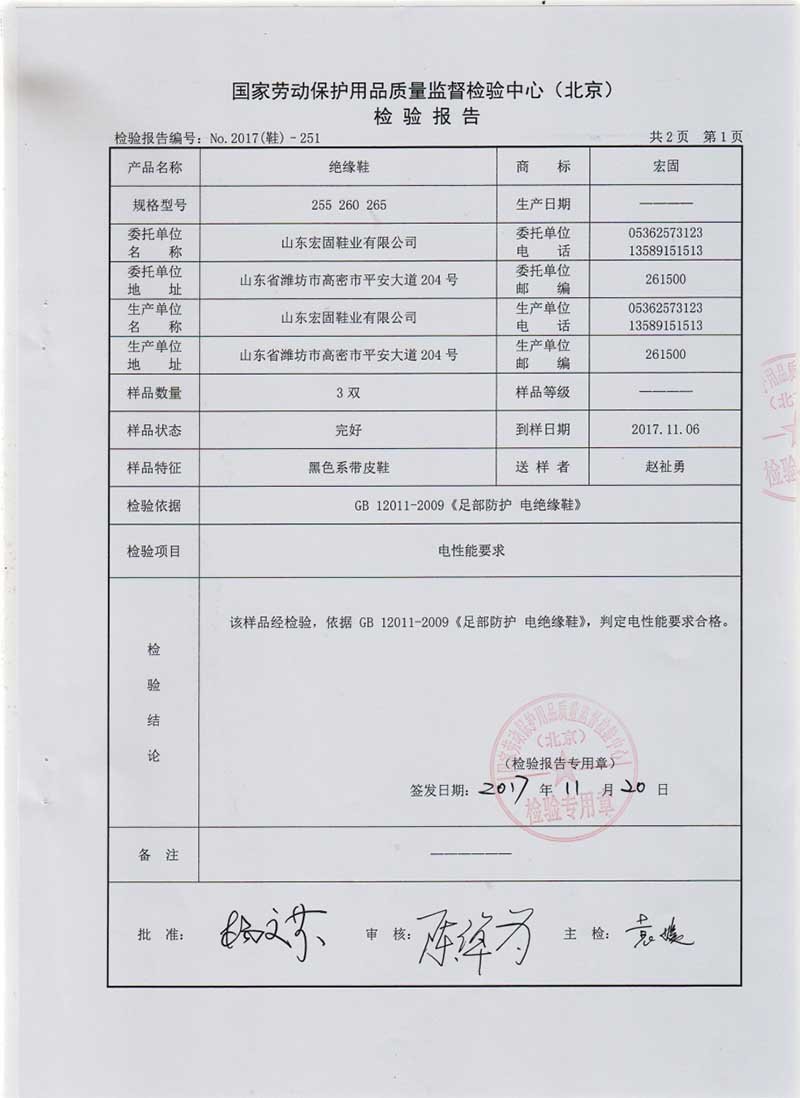 国家劳动保护用品质量监督检验中心（北京）
检 验 报 告
检验报告编号：No.2017(鞋)－251 共 2 页 第 1 页
产品名称 绝缘鞋 商 标 宏固
规格型号 255 260 265 生产日期 ————
委托单位名 称 山东宏固鞋业有限公司 委托单位电 话 05362573123 13589151513
委托单位地 址 山东省潍坊市高密市平安大道 204 号 委托单位邮 编 261500
生产单位名 称 山东宏固鞋业有限公司 生产单位电 话 05362573123 13589151513
生产单位地 址 山东省潍坊市高密市平安大道 204 号 生产单位邮 编 261500
样品数量 3 双 样品等级 ————
样品状态 完好 到样日期 2017.11.06
样品特征 黑色系带皮鞋 送 样 者 赵祉勇
检验依据 GB 12011-2009《足部防护 电绝缘鞋》
检验项目 电性能要求
检验结论 该样品经检验，依据 GB 12011-2009《足部防护 电绝缘鞋》，判定电性能要求合格。
（北京）
（检验报告专用章）
签发日期：2017 年 11 月 20 日
检验专用章
备 注 ——————
批 准： 审 核： 主 检：